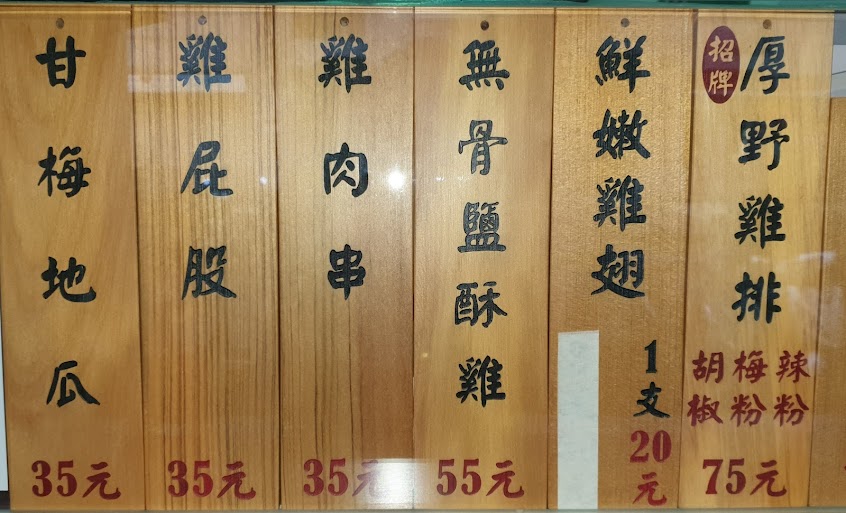 招牌
厚野雞排
胡椒
梅粉
辣粉
75元
鮮嫩雞翅
1支
20元
無骨鹽酥雞
55元
雞肉串
35元
雞屁股
35元
甘梅地瓜
35元